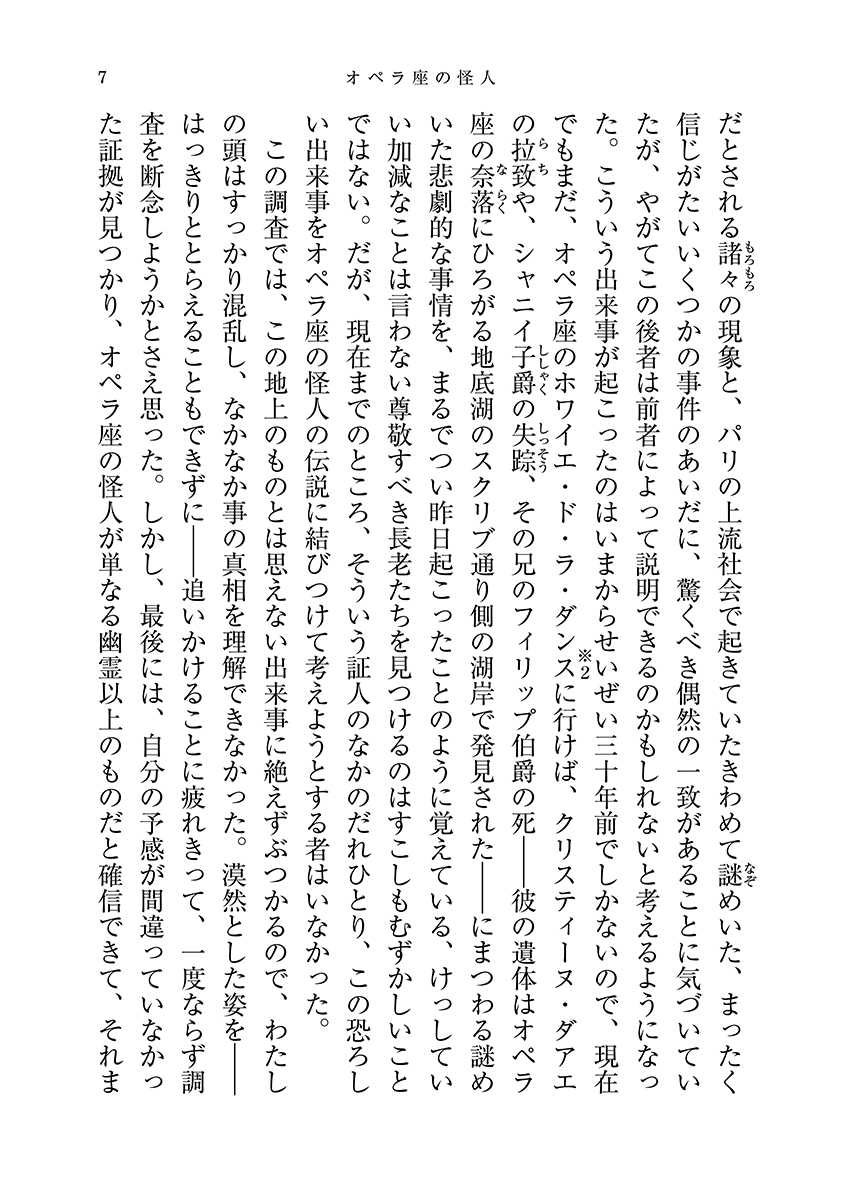 7
オペラ座の怪人
だとされる諸々の現象と、パリの上流社会で起きていたきわめて謎めいた、まったく
もろもろ
なぞ
信じがたいいくつかの事件のあいだに、驚くべき偶然の一致があることに気づいてい
たが、やがてこの後者は前者によって説明できるのかもしれないと考えるようになっ
た。こういう出来事が起こったのはいまからせいぜい三十年前でしかないので、現在
でもまだ、オペラ座のホワイエ・ド・ラ・ダンスに行けば、クリスティーヌ・ダアエ
※2
の拉致や、シャニイ子爵の失踪、その兄のフィリップ伯爵の死――彼の遺体はオペラ
らち
ししゃく
しっそう
座の奈落にひろがる地底湖のスクリブ通り側の湖岸で発見された――にまつわる謎め
ならく
いた悲劇的な事情を、まるでつい昨日起こったことのように覚えている、けっしてい
い加減なことは言わない尊敬すべき長老たちを見つけるのはすこしもむずかしいこと
ではない。だが、現在までのところ、そういう証人のなかのだれひとり、この恐ろし
い出来事をオペラ座の怪人の伝説に結びつけて考えようとする者はいなかった。
この調査では、この地上のものとは思えない出来事に絶えずぶつかるので、わたし
の頭はすっかり混乱し、なかなか事の真相を理解できなかった。漠然とした姿を――
はっきりととらえることもできずに――追いかけることに疲れきって、一度ならず調
査を断念しようかとさえ思った。しかし、最後には、自分の予感が間違っていなかっ
た証拠が見つかり、オペラ座の怪人が単なる幽霊以上のものだと確信できて、それま